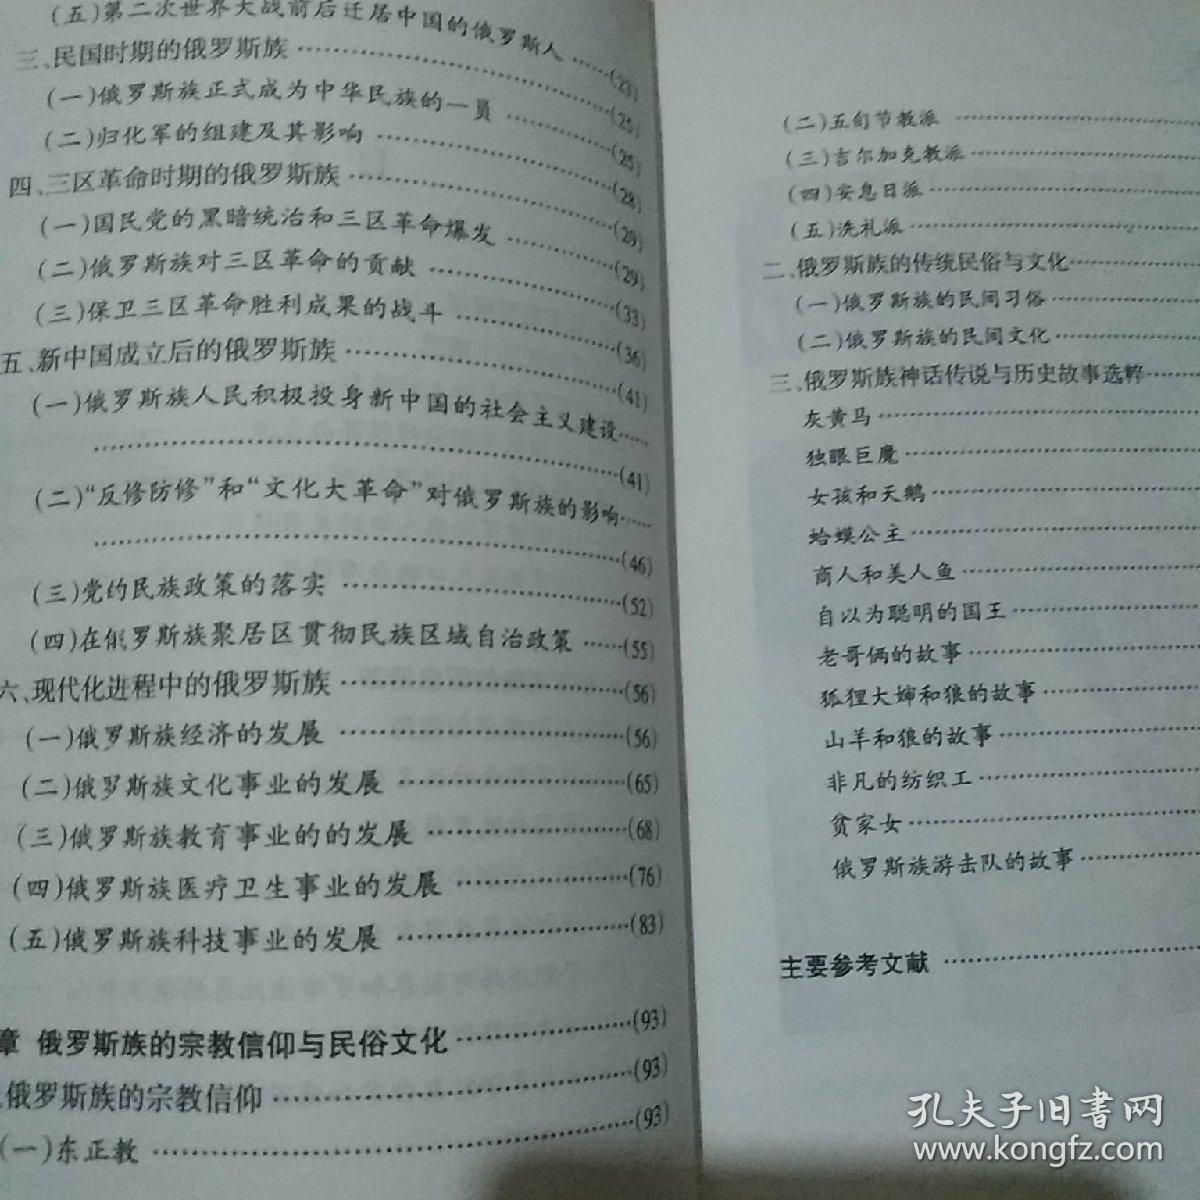 (五)第二次世界大战前后迁居中国的俄罗斯人……(23)
三、民国时期的俄罗斯族……(25)
(一)俄罗斯族正式成为中华民族的一员……(25)
(二)归化军的组建及其影响……(28)
四、三区革命时期的俄罗斯族……(29)
(一)国民党的黑暗统治和三区革命爆发……(29)
(二)俄罗斯族对三区革命的贡献……(33)
(三)保卫三区革命胜利成果的战斗……(36)
五、新中国成立后的俄罗斯族……(41)
(一)俄罗斯族人民积极投身新中国的社会主义建设……
……(41)
(二)“反修防修”和“文化大革命”对俄罗斯族的影响……
……(46)
(三)党的民族政策的落实……(52)
(四)在俄罗斯族聚居区贯彻民族区域自治政策……(55)
六、现代化进程中的俄罗斯族……(56)
(一)俄罗斯族经济的发展……(56)
(二)俄罗斯族文化事业的发展……(65)
(三)俄罗斯族教育事业的的发展……(68)
(四)俄罗斯族医疗卫生事业的发展……(76)
(五)俄罗斯族科技事业的发展……(83)
章 俄罗斯族的宗教信仰与民俗文化……(93)
、俄罗斯族的宗教信仰……(93)
(一)东正教……(93)
(二)五旬节教派……
(三)吉尔加克教派……
(四)安息日派……
(五)洗礼派……
二、俄罗斯族的传统民俗与文化……
(一)俄罗斯族的民间习俗……
(二)俄罗斯族的民间文化……
三、俄罗斯族神话传说与历史故事选粹……
灰黄马……
独眼巨魔……
女孩和天鹅……
蛤蟆公主……
商人和美人鱼……
自以为聪明的国王……
老哥俩的故事……
狐狸大婶和狼的故事……
山羊和狼的故事……
非凡的纺织工……
贫家女……
俄罗斯族游击队的故事……
主要参考文献……
孔夫子旧书网
www.kongfz.com